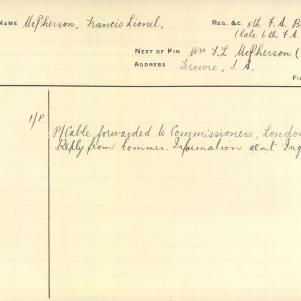 NAME McPherson, Francis Lionel. REG. &C. 5th F. A. B
(late 6th F. A.
NEXT OF KIN Mrs F. L. McPherson (
ADDRESS Terowie, S. A.
FI
1/P P/Cable forwarded to Commissioners, London
Reply from Commrs. Information almt Inq